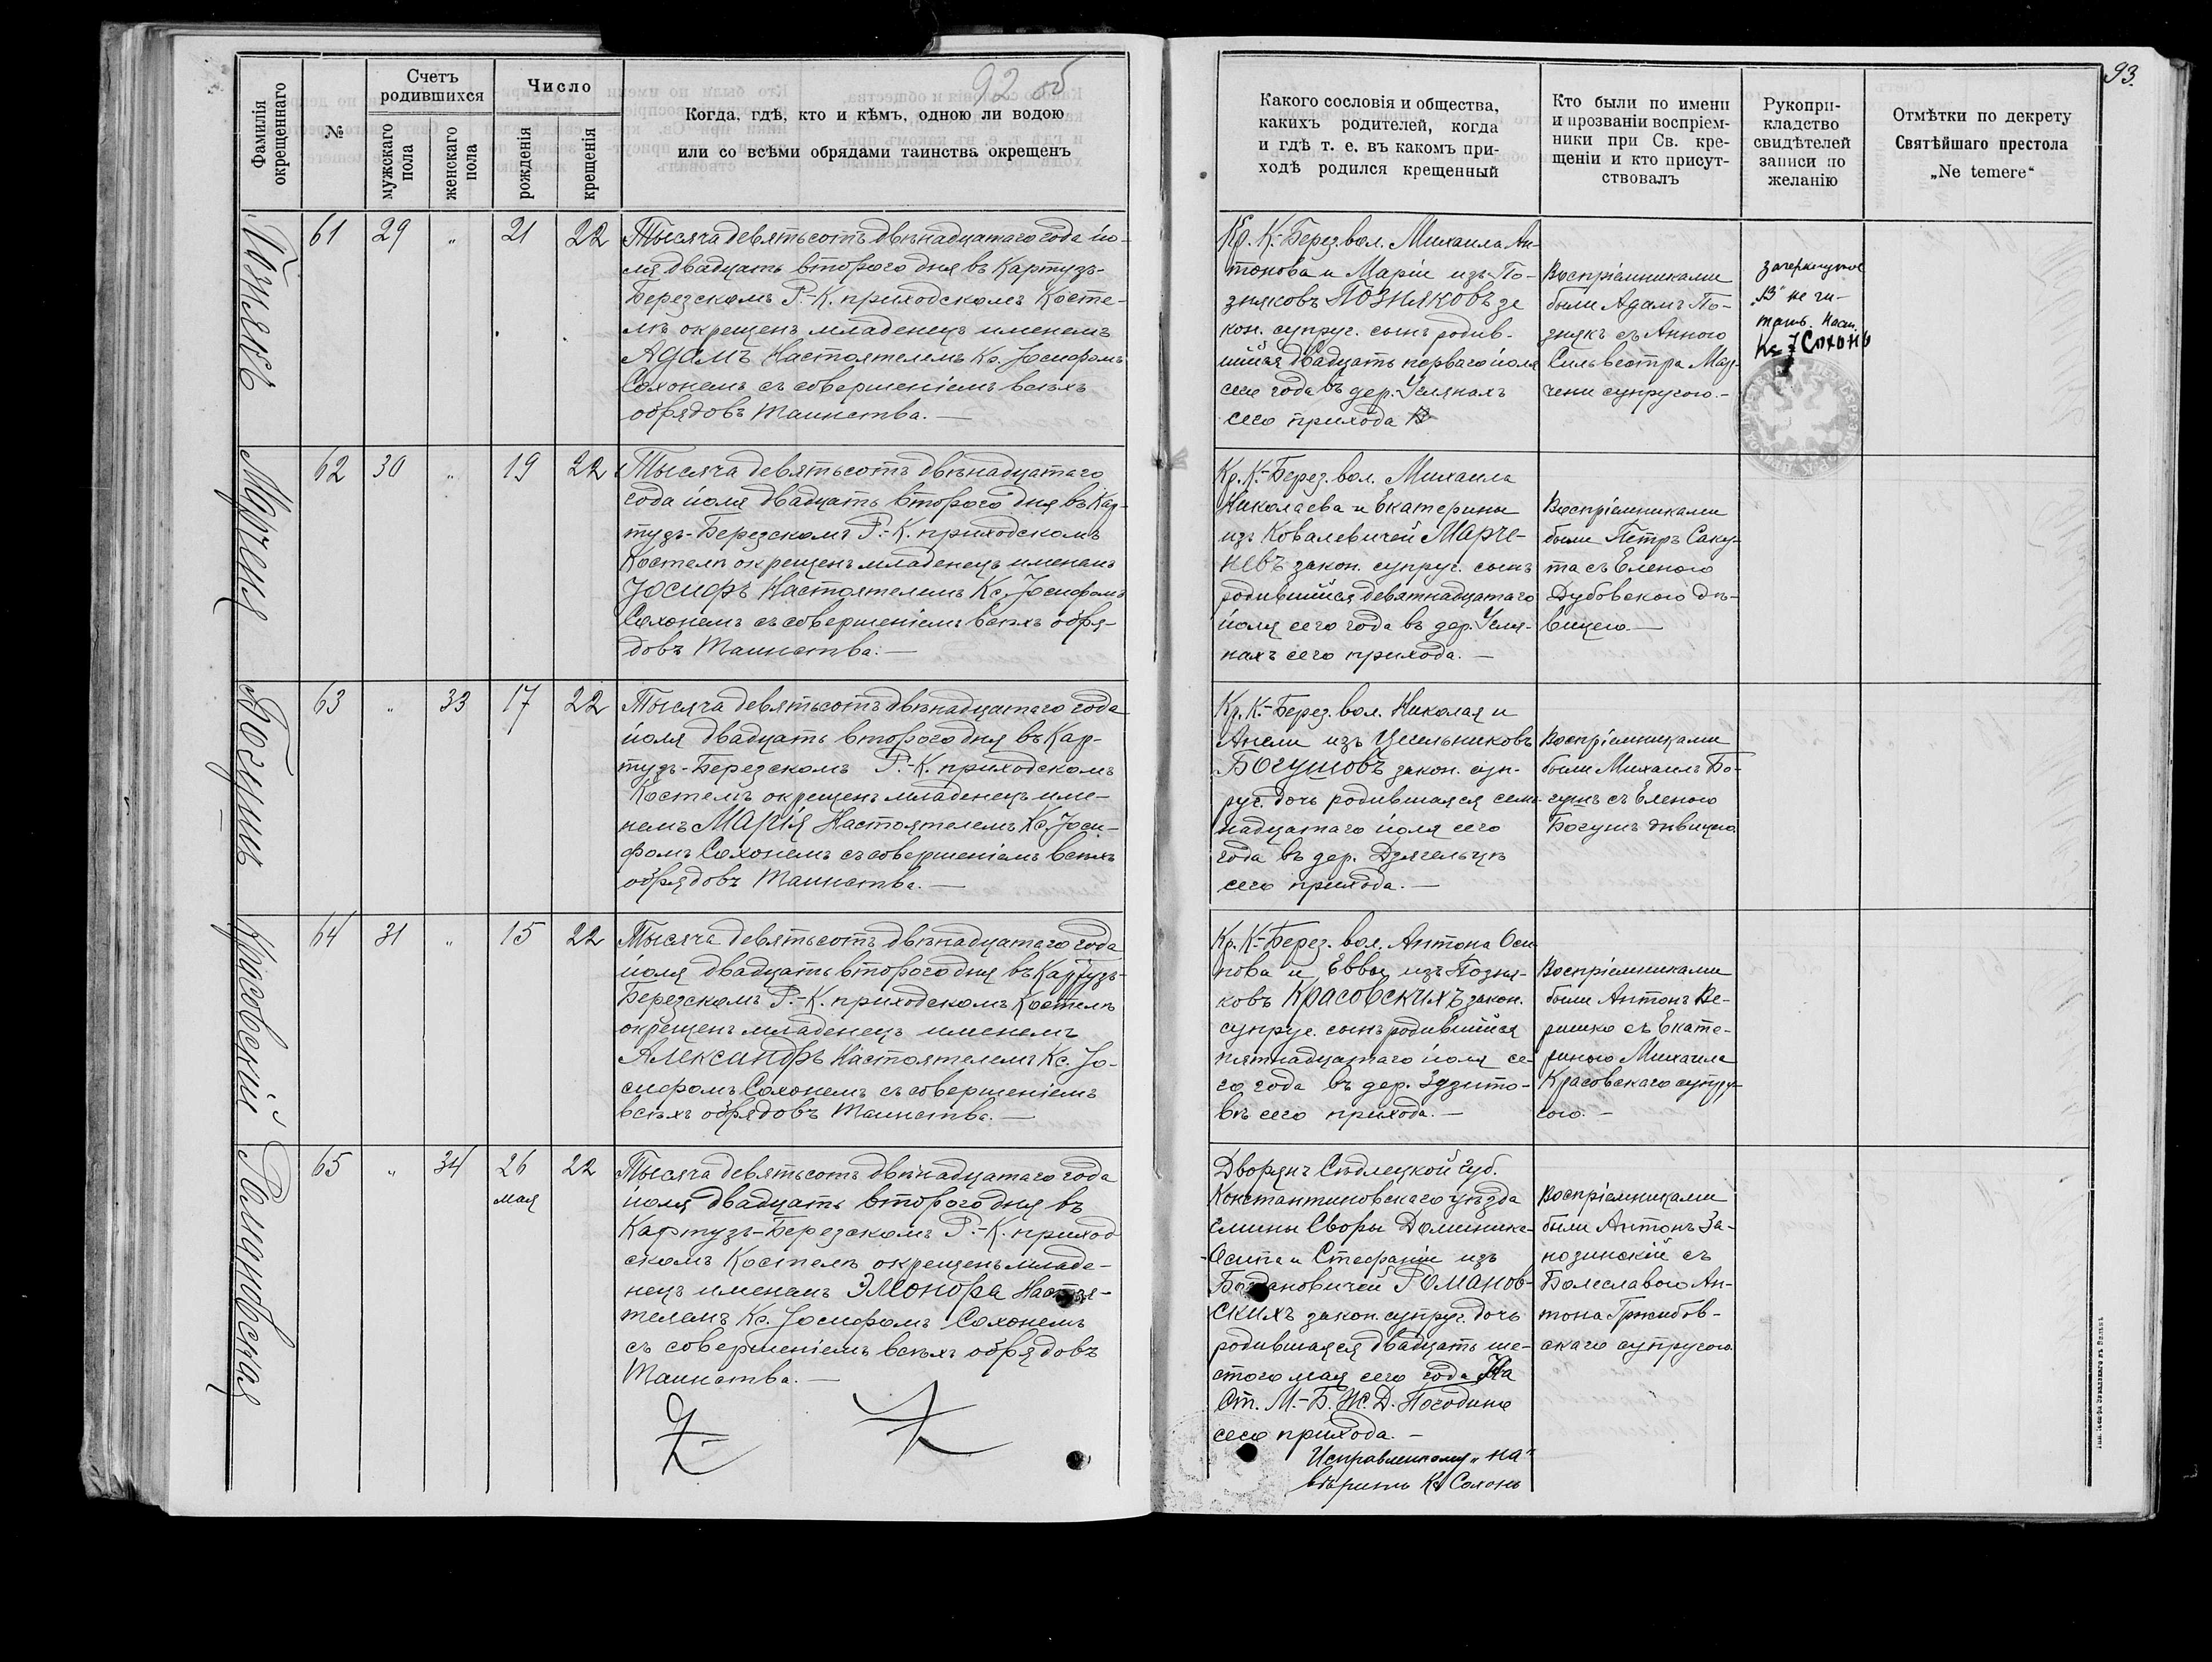 92 об
93.
Фамилія
окрещеннаго
№
Счетъ
родившихся
мужскаго
пола
женскаго
пола
Число
рожденія
крещенія
Когда, гдѣ, кто и кѣмъ, одною ли водою
или со всѣми обрядами таинства окрещенъ
Какого сословія и общества,
какихъ родителей, когда
и гдѣ т. е. въ какомъ при-
ходѣ родился крещенный
Кто были по имени
и прозваніи воспріем-
ники при Св. кре-
щеніи и кто присут-
ствовалъ
Рукопри-
кладство
свидѣтелей
записи по
желанію
Отмѣтки по декрету
Святѣйшаго престола
„Ne temere“
Познякъ
61 29 „ 21 22
Тысяча девятьсотъ двѣнадцатаго года ію-
ля двадцать второго дня въ Картузъ-
Березскомъ Р.-К. приходскомъ Косте-
лѣ окрещенъ младенецъ именемъ
Адамъ Настоятелемъ Кс. Іосифомъ
Сохонемъ съ совершеніемъ всѣхъ
обрядовъ Таинства. —
Кр. К.-Берез. вол. Михаила Ан-
тонова и Маріи изъ По-
зняковъ Позняковъ за
кон. супруг. сынъ родив-
шійся двадцать перваго іюля
сего года въ дер. Углянахъ
сего прихода В
Воспріемниками
были Адамъ По-
знякъ съ Анною
Сильвестра Мар-
чени супругою. -
зачеркнутое
„В“ не чи-
тать. Наст.
Кс. І Сохонь
Марченя
62 30 „ 19 22
Тысяча девятьсотъ двѣнадцатаго
года іюля двадцать второго дня въ Кар-
тузъ-Березскомъ Р.-К. приходскомъ
Костелѣ окрещенъ младенецъ именемъ
Іосифъ Настоятелемъ Кс. Іосифомъ
Сохонемъ съ совершеніемъ всѣхъ обря-
довъ Таинства. —
Кр. К.-Берез. вол. Михаила
Николаева и Екатерины
изъ Ковалевичей Марче-
невъ закон. супруг. сынъ
родившійся девятнадцатаго
іюля сего года въ дер. Угля-
нахъ сего прихода. —
Воспріемниками
были Петръ Саку-
та съ Еленою
Дубовскою дѣ-
вицею. —
Богушъ
63 „ 33 17 22
Тысяча девятьсотъ двѣнадцатаго года
іюля двадцать второго дня въ Кар-
тузъ-Березскомъ Р.-К. приходскомъ
Костелѣ окрещенъ младенецъ име-
немъ Марія Настоятелемъ Кс. Іоси-
фомъ Сохонемъ съ совершеніемъ всѣхъ
обрядовъ Таинства. —
Кр. К.-Берез. вол. Николая и
Анели изъ
Богушовъ закон. суп-
руг. дочь родившаяся сем-
надцатаго іюля сего
года въ дер. Дзягельцѣ
сего прихода. —
Воспріемниками
были Михаилъ Бо-
гушъ съ Еленою
Богушъ дѣвицею
Красовскій
64 31 „ 15 22
Тысяча девятьсотъ двѣнадцатаго года
іюля двадцать второго дня въ Картузъ-
Березскомъ Р.-К. приходскомъ Костелѣ
окрещенъ младенецъ именемъ
Александръ Настоятелемъ Кс. Іо-
сифомъ Сохонемъ съ совершеніемъ
всѣхъ обрядовъ Таинства. —
Кр. К.-Берез. вол. Антона Оси-
пова и Еввы изъ Позня-
ковъ Красовскихъ закон.
супруг. сынъ родившійся
пятнадцатаго іюля се-
го года въ дер. Здзито-
вѣ сего прихода. —
Воспріемниками
были Антонъ Ве-
ришко съ Екате-
риною Михаила
Красовскаго супру-
гою. -
Романовская
65 „ 34 26 22
мая
Тысяча девятьсотъ двѣнадцатаго года
іюля двадцать второго дня въ
Картузъ-Березскомъ Р.-К. приход
скомъ Костелѣ окрещенъ младе-
нецъ именемъ Элеонора Настоя-
телемъ Кс. Іосифомъ Сохонемъ
съ совершеніемъ всѣхъ обрядовъ
Таинства. —
Дворянъ Сѣдлецкой губ.
Константиновскаго уѣзда
гмины Своры Доминика-
Осипа и Стефаніи изъ
Богдановичей Романов-
скихъ закон. супруг. дочь
родившаяся двадцать ше-
стого мая сего года На
Ст. М.-Б. Ж. Д. Погодино
сего прихода. —
Исправленному „на“
вѣрить Кс Сохонь
Воспріемниками
были Антонъ За-
нозинскій съ
Болеславою Ан-
тона Гржибов-
скаго супругою